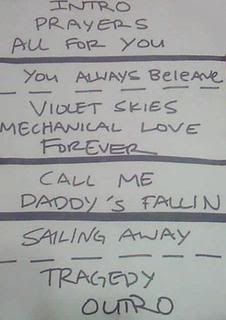 INTRO
PRAYERS
ALL FOR YOU
YOU ALWAYS BELEAVE
VIOLET SKIES
MECHANICAL LOVE
FOREVER
CALL ME
DADDY'S FALLIN
SAILING AWAY
TRAGEDY
OUTRO